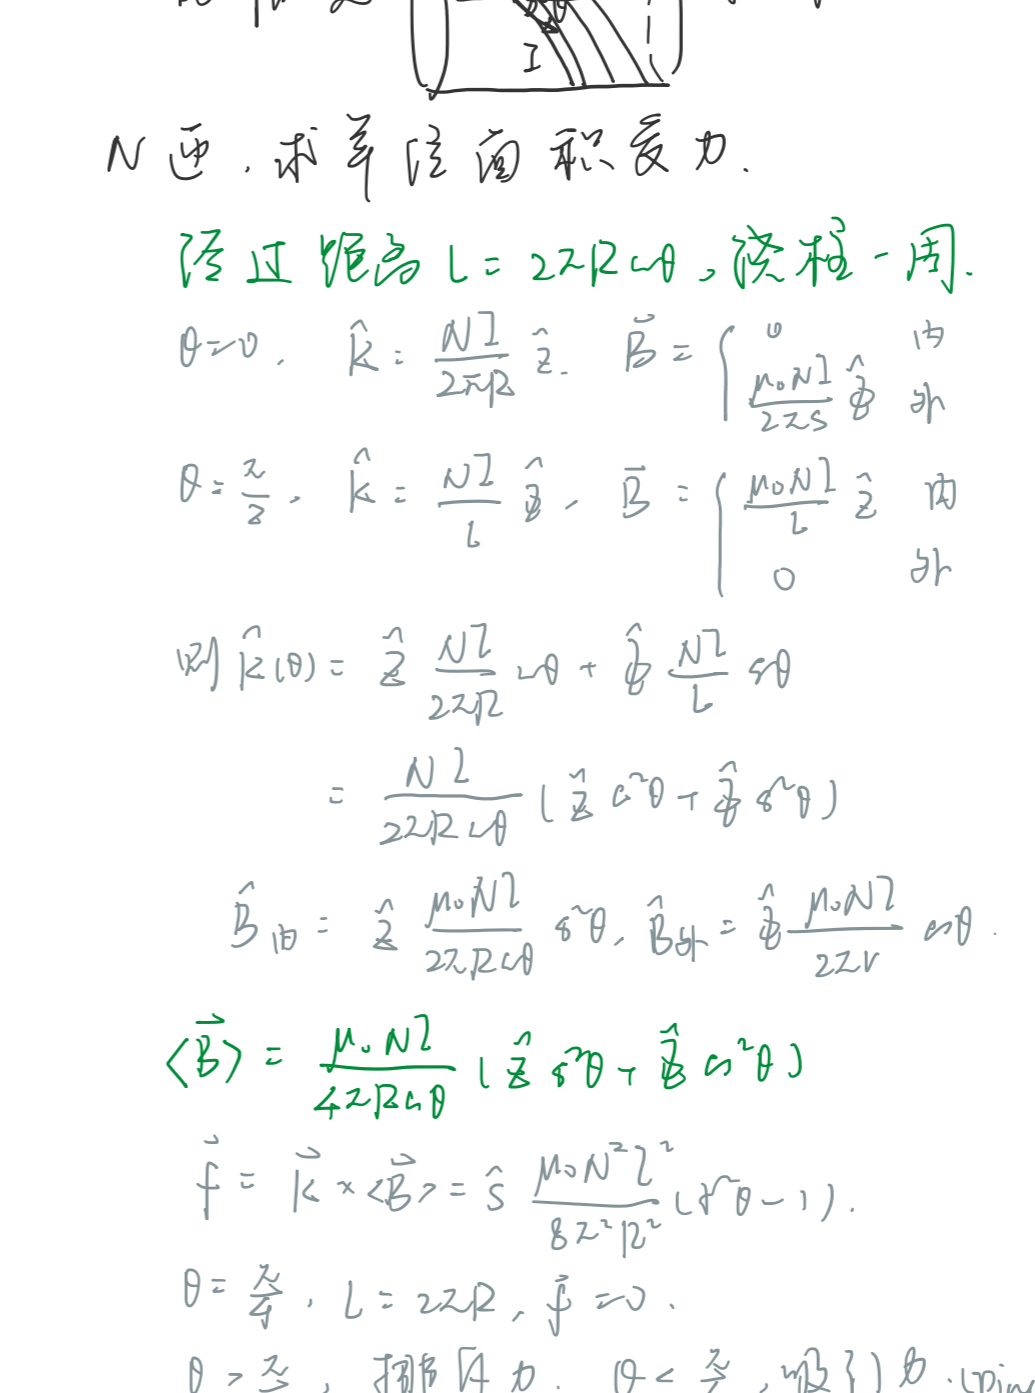 I
N 匝，求单位面积受力.
经过距离 L = 2πR cotθ，绕柱一周.
θ=0, K̂ = NI/2πR ẑ. B⃗ = { 0 内
μ₀NI/2πs φ̂ 外
θ = π/2, K̂ = NI/L φ̂, B⃗ = { μ₀NI/L ẑ 内
0 外
则 K̂(θ) = ẑ NI/2πR cθ + φ̂ NI/L sθ
= NI/2πR cθ (ẑ c²θ + φ̂ s²θ)
B̂内 = ẑ μ₀NI/2πR cθ s²θ, B̂外 = φ̂ μ₀NI/2πr cosθ.
<B⃗> = μ₀NI/4πR cθ (ẑ s²θ + φ̂ c²θ)
f⃗ = K⃗ × <B⃗> = ŝ μ₀N²I²/8π²R² (
θ = π/4, L = 2πR, f⃗ = 0.
θ > 力. θ < 吸引力.